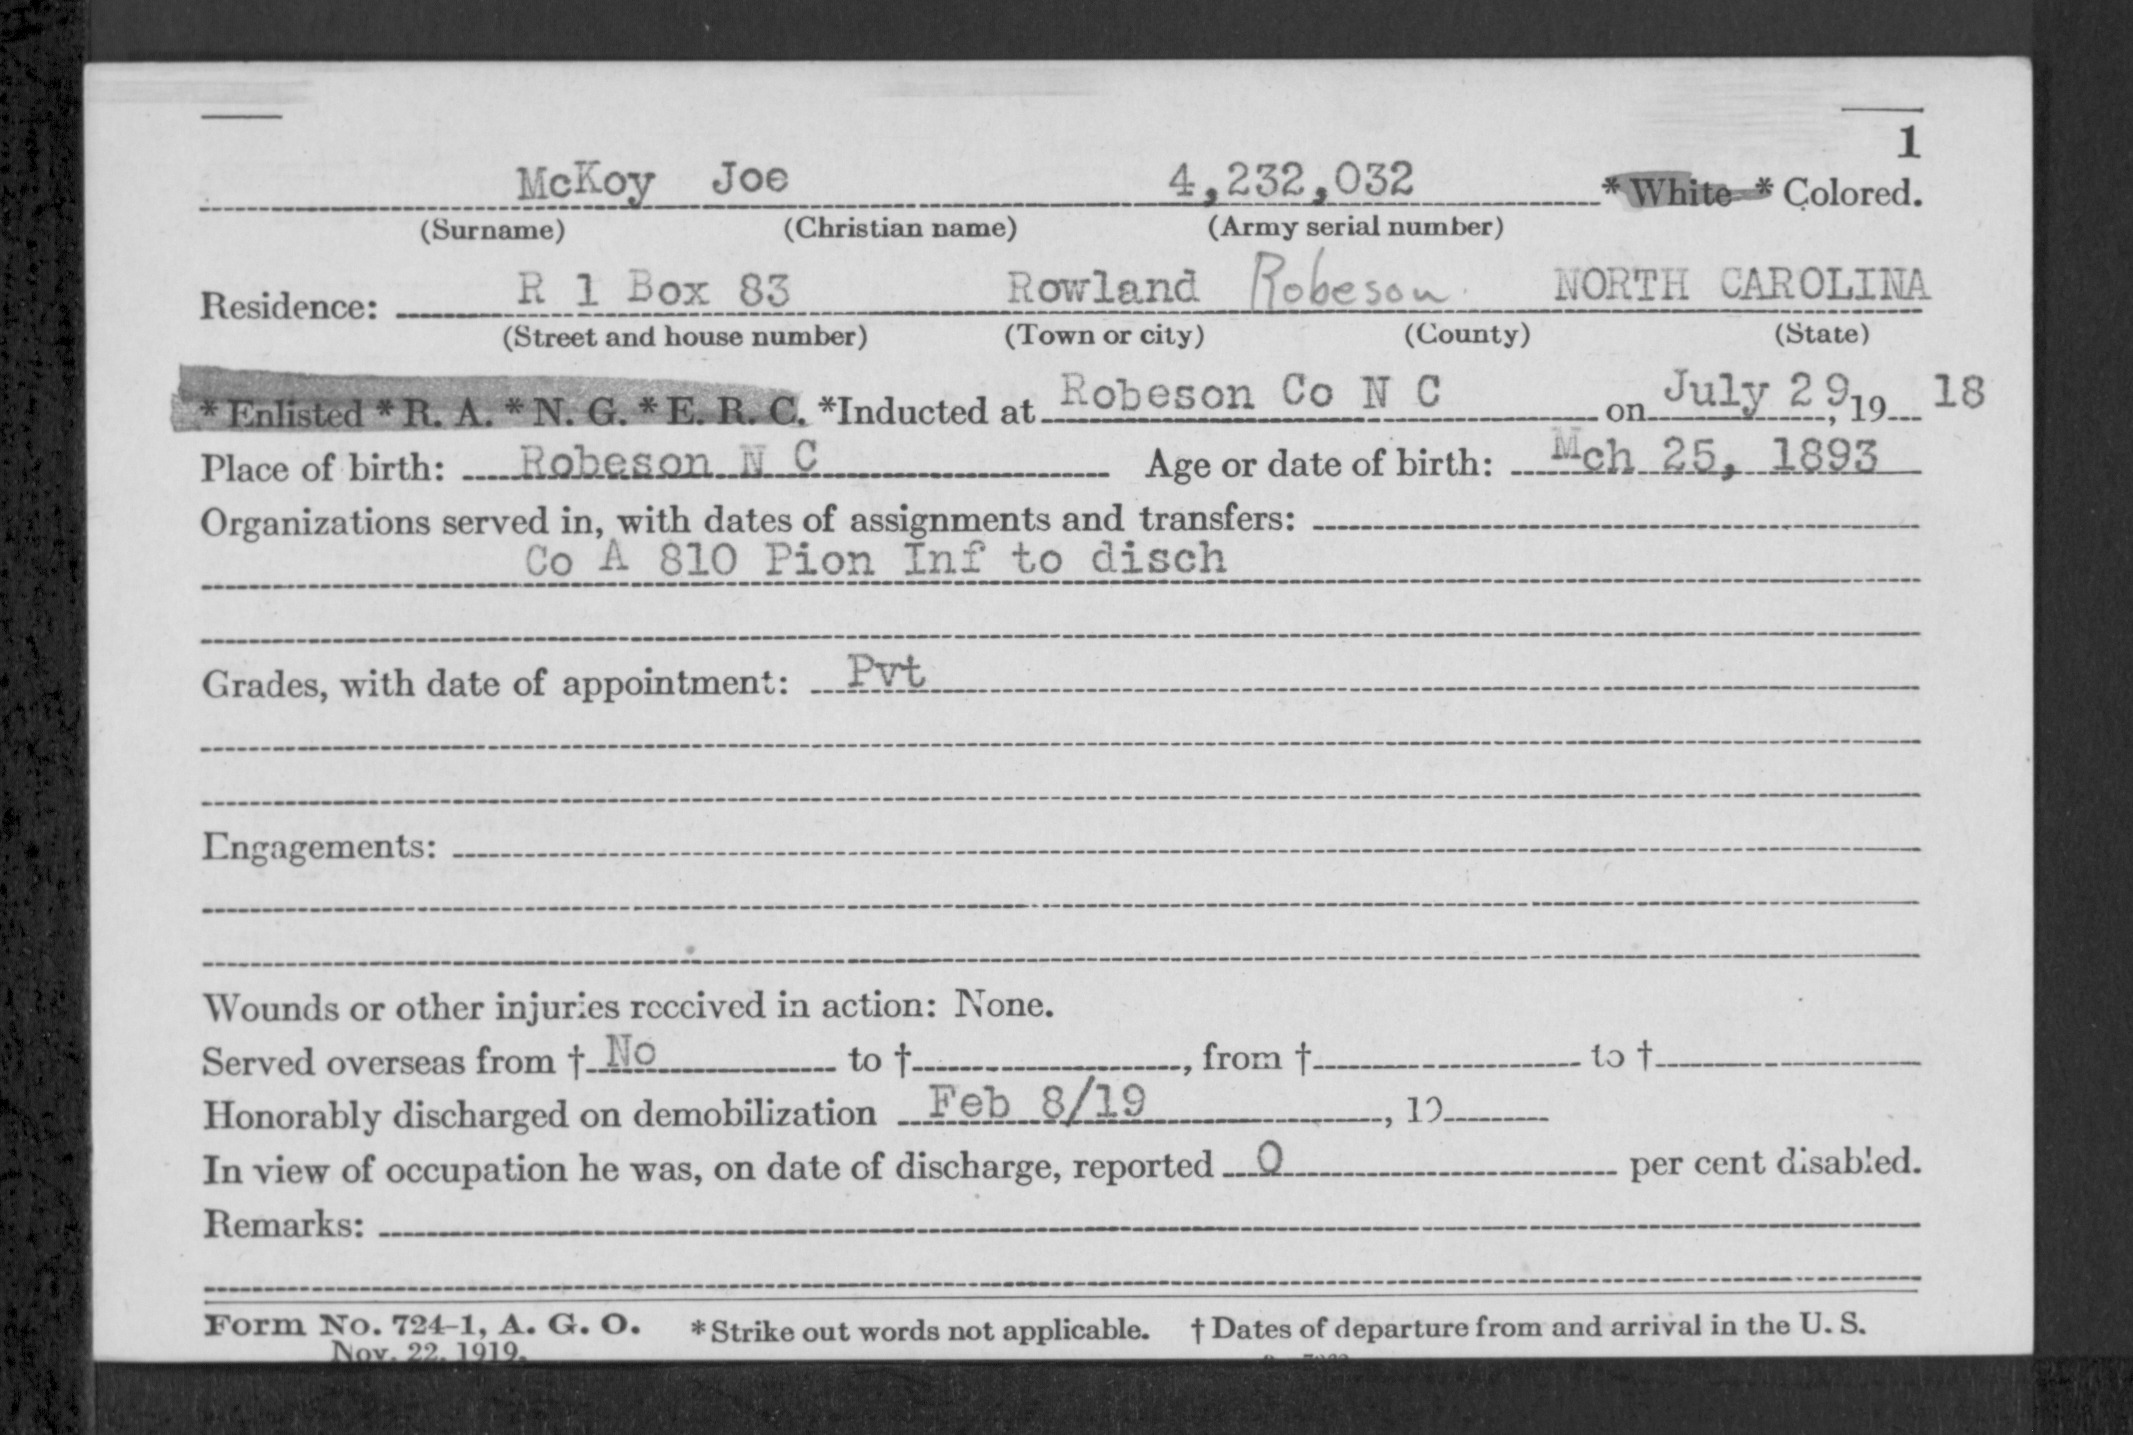 1
McKoy Joe 4,232,032 * White * Colored.
(Surname) (Christian name) (Army serial number)
Residence: R 1 Box 83 Rowland Robeson NORTH CAROLINA
(Street and house number) (Town or city) (County) (State)
* Enlisted * R. A. * N. G. * E. R. C. *Inducted at Robeson Co N C on July 29, 19 18
Place of birth: Robeson N C Age or date of birth: Mch 25, 1893
Organizations served in, with dates of assignments and transfers:
Co A 810 Pion Inf to disch
Grades, with date of appointment: Pvt
Engagements:
Wounds or other injuries received in action: None.
Served overseas from † No to †, from † to †
Honorably discharged on demobilization Feb 8/19, 19
In view of occupation he was, on date of discharge, reported 0 per cent disabled.
Remarks:
Form No. 724-1, A. G. O. * Strike out words not applicable. † Dates of departure from and arrival in the U. S.
Nov. 22, 1919.